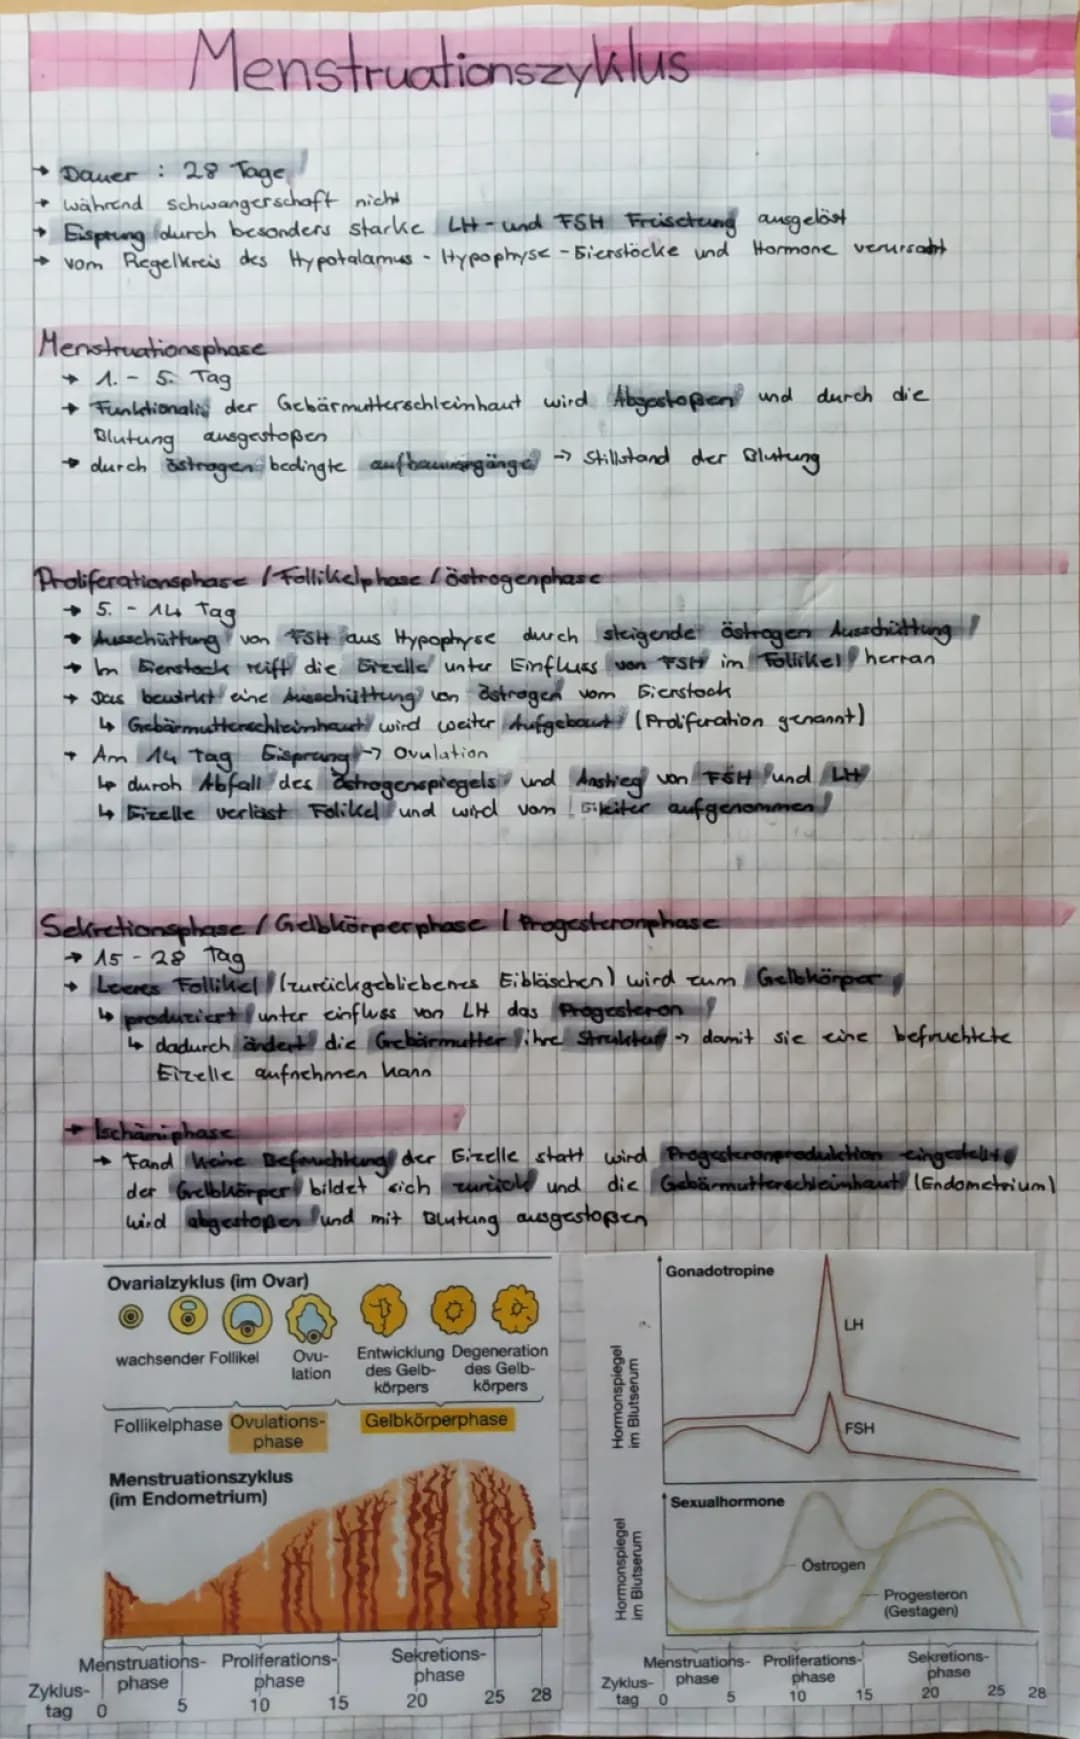 Menstruationszyklus
→ Dauer : 28 Tage
→ während schwangerschaft nicht
→ Eisprung durch besonders starke LH - und FSH Freisetung ausgelöst
→ vom Regelkreis des Hypotalamus - Hypophyse - Eierstöcke und Hormone verursacht
Menstruationsphase
→ 1. - 5. Tag
→ Funktionalis der Gebärmutterschleimhaut wird Abgestoßen und durch die
Blutung ausgestoßen
→ durch östrogen bedingte aufbauvorgänge → Stillstand der Blutung
Proliferationsphase / Follikelphase / östrogenphase
→ 5. - 14 Tag
→ Ausschüttung von FSH aus Hypophyse durch steigende östrogen Ausschüttung
→ Im Eierstock reift die Eizelle unter Einfluss von FSH im Follikel herran
→ Das bewirkt eine Ausschüttung von östrogen vom Eierstock
↳ Gebärmutterschleimhaut wird weiter Aufgebaut (Proliferation genannt)
→ Am 14 Tag Eisprung → Ovulation
↳ durch Abfall des östrogenspiegels und Anstieg von FSH und LH
↳ Eizelle verlässt Folikel und wird vom Eileiter aufgenommen
Sekretionsphase / Gelbkörperphase / Progesteronphase
→ 15 - 28 Tag
→ Leeres Follikel (zurückgebliebenes Eibläschen) wird zum Gelbkörper
↳ produziert unter einfluss von LH das Progesteron
↳ dadurch ändert die Gebärmutter ihre Struktur → damit sie eine befruchtete
Eizelle aufnehmen kann
→ Ischämiphase
→ Fand keine Befruchtung der Eizelle statt wird Progesteronproduktion eingestellt,
der Gelbkörper bildet sich zurück und die Gebärmutterschleimhaut (Endometrium)
wird abgestoßen und mit Blutung ausgestoßen
Ovarialzyklus (im Ovar)
wachsender Follikel
Ovu-
lation
Entwicklung
des Gelb-
körpers
Degeneration
des Gelb-
körpers
Follikelphase
Ovulations-
phase
Gelbkörperphase
Menstruationszyklus
(im Endometrium)
Menstruations-
phase
Proliferations-
phase
Sekretions-
phase
Zyklus-
tag
0 5 10 15 20 25 28
Gonadotropine
Hormonspiegel
im Blutserum
LH
FSH
Sexualhormone
Hormonspiegel
im Blutserum
Östrogen
Progesteron
(Gestagen)
Menstruations-
phase
Proliferations-
phase
Sekretions-
phase
Zyklus-
tag
0 5 10 15 20 25 28